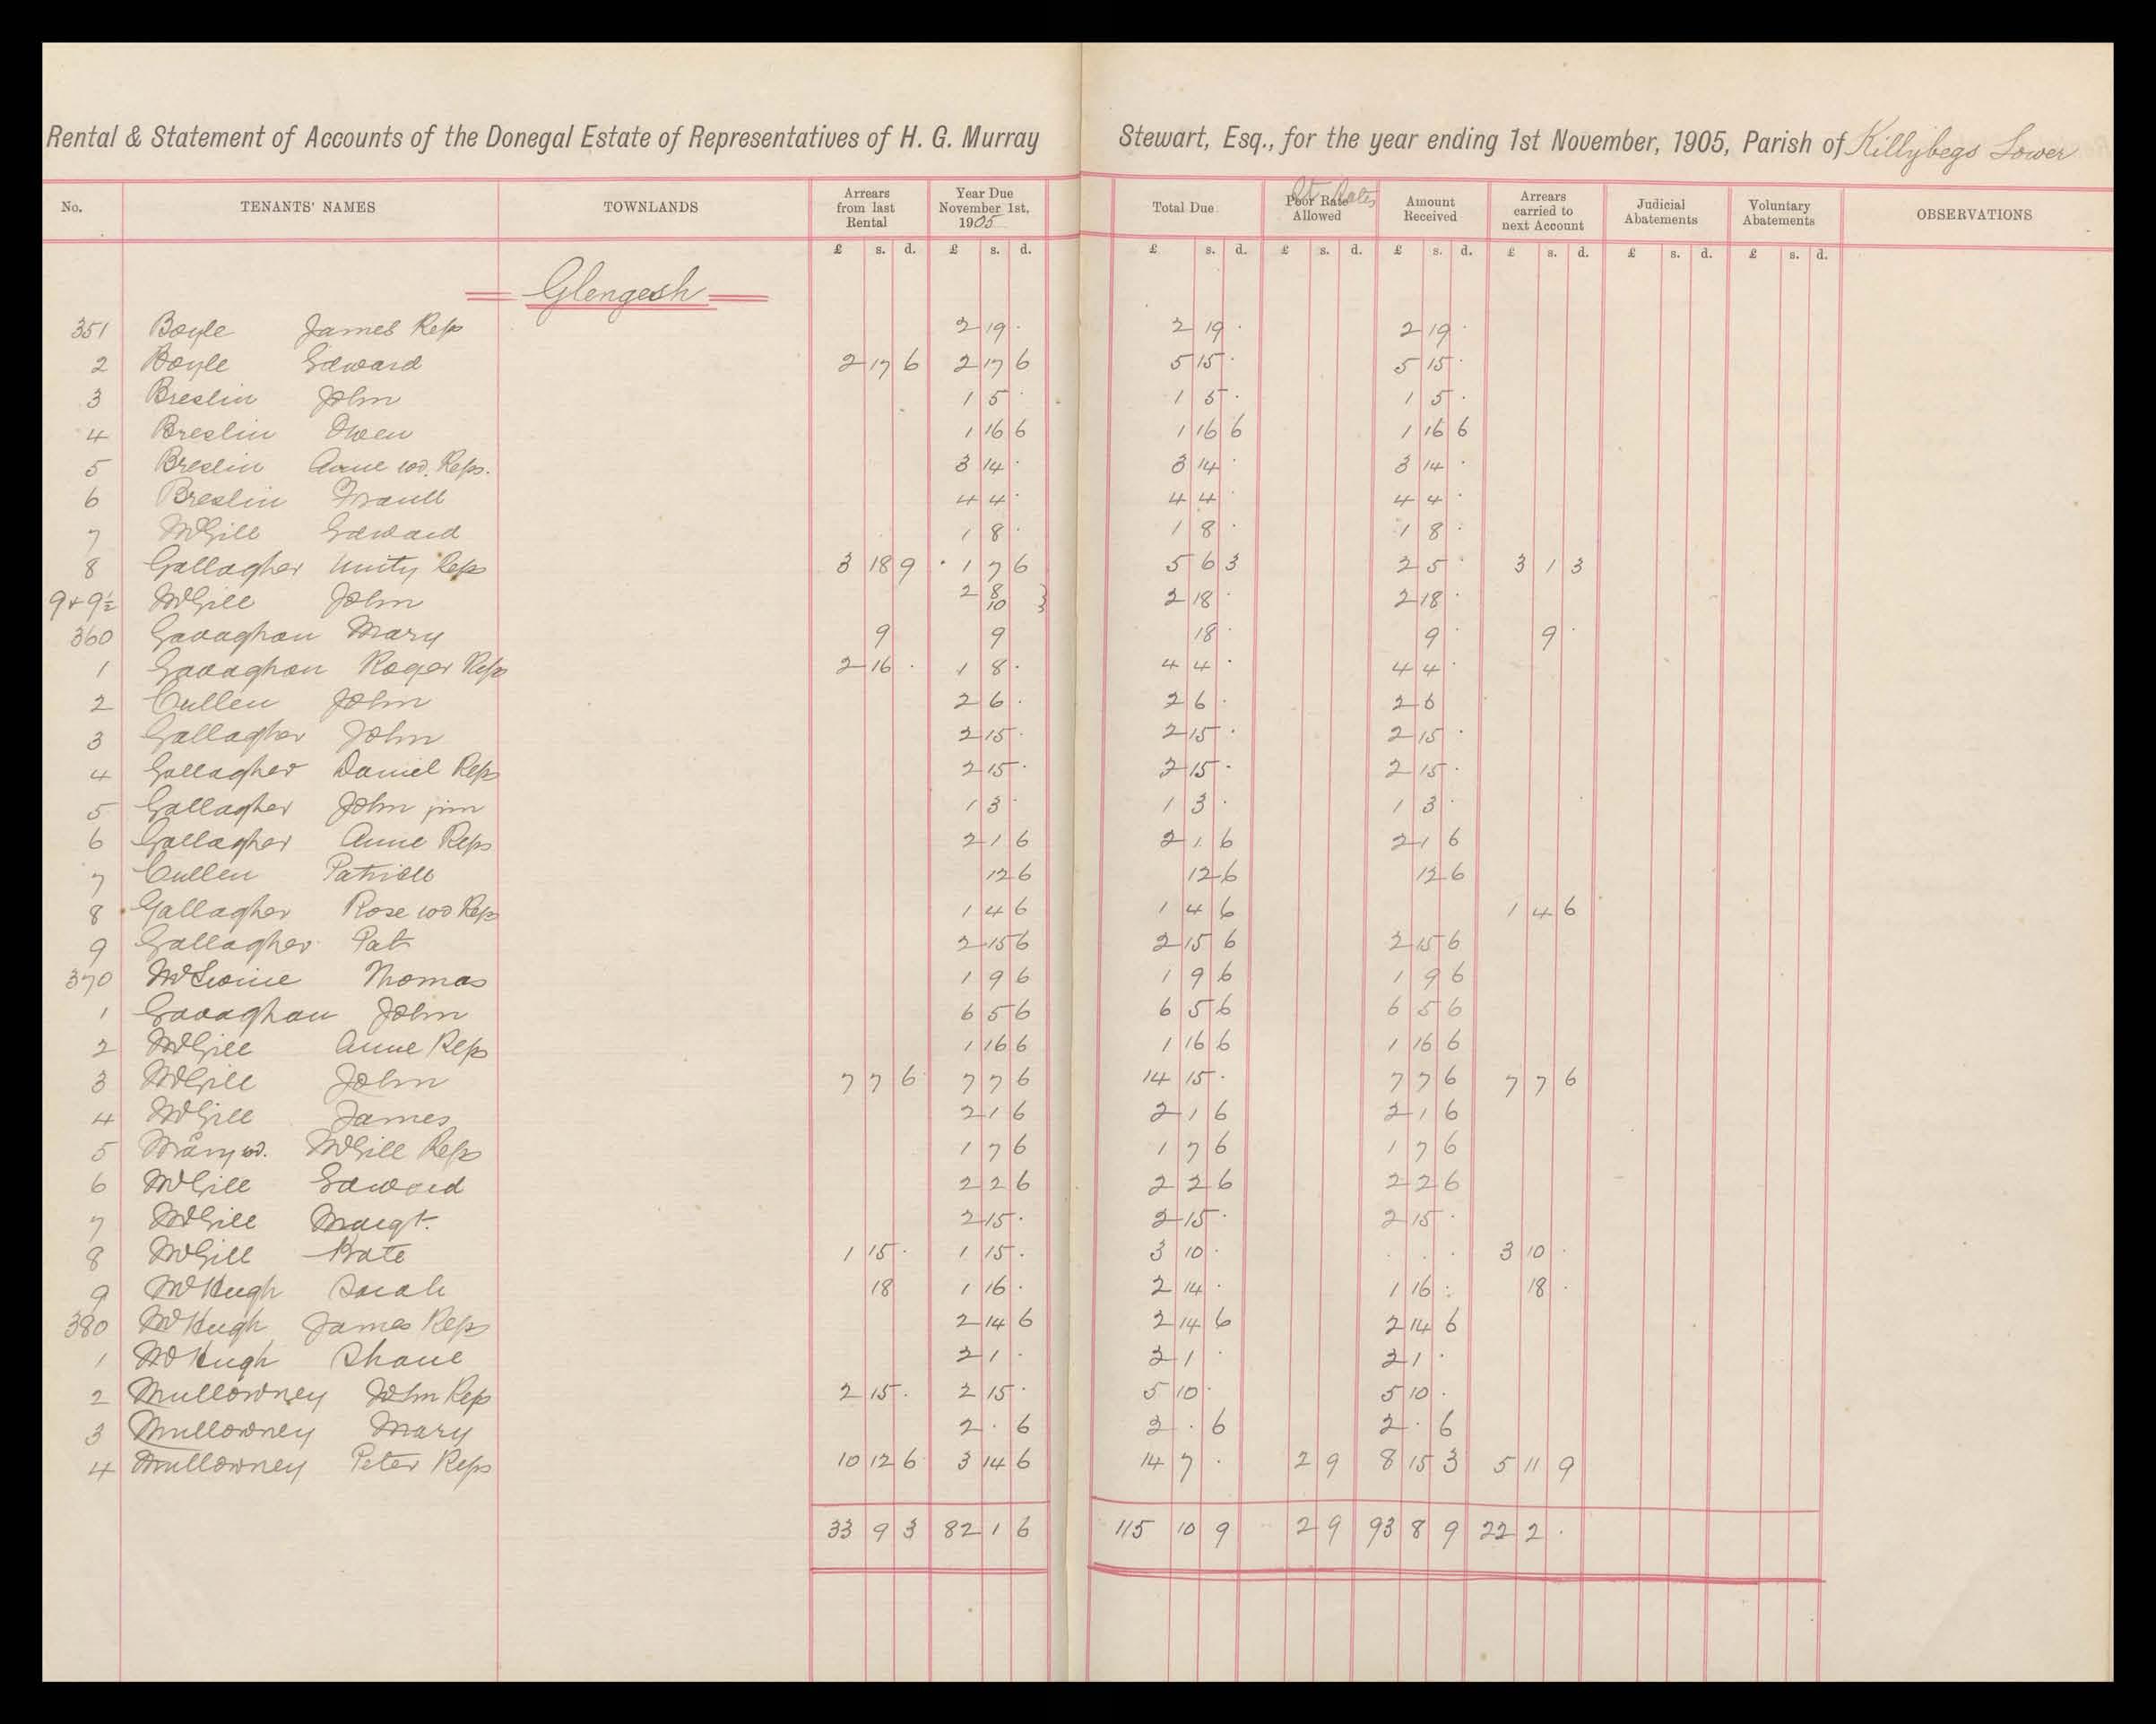 Rental & Statement of Accounts of the Donegal Estate of Representatives of H. G. Murray Stewart, Esq., for the year ending 1st November, 1905, Parish of Killybegs Lower
No. TENANTS' NAMES TOWNLANDS Arrears from last Rental Year Due November 1st, 1905 Total Due Poor Rate Allowed Ct Rates Amount Received Arrears carried to next Account Judicial Abatements Voluntary Abatements OBSERVATIONS
£ s. d. £ s. d. £ s. d. £ s. d. £ s. d. £ s. d. £ s. d. £ s. d.
Glengesh
351 Boyle James Reps 2 19 · 2 19 · 2 19 ·
2 Boyle Edward 2 17 6 2 17 6 5 15 · 5 15 ·
3 Breslin John 1 5 · 1 5 · 1 5 ·
4 Breslin Owen 1 16 6 1 16 6 1 16 6
5 Breslin Anne wd. Reps. 3 14 · 3 14 · 3 14 ·
6 Breslin Frank 4 4 · 4 4 · 4 4 ·
7 McGill Edward 1 8 · 1 8 · 1 8 ·
8 Gallagher Unity Reps 3 18 9 · 1 7 6 5 6 3 2 5 · 3 1 3
9 + 9½ McGill John 2 8 10 } 2 18 · 2 18 ·
360 Gavaghan Mary 9 9 18 · 9 · 9 ·
1 Gavaghan Roger Reps 2 16 · 1 8 · 4 4 · 4 4 ·
2 Cullen John 2 6 · 2 6 · 2 6
3 Gallagher John 2 15 · 2 15 · 2 15 ·
4 Gallagher Daniel Reps 2 15 · 2 15 · 2 15 ·
5 Gallagher John jun 1 3 · 1 3 · 1 3 ·
6 Gallagher Anne Reps 2 1 6 2 1 6 2 1 6
7 Cullen Patrick 12 6 12 6 12 6
8 Gallagher Rose wd Reps 1 4 6 1 4 6 1 4 6
9 Gallagher Pat 2 15 6 2 15 6 2 15 6
370 McSwine Thomas 1 9 6 1 9 6 1 9 6
1 Gavaghan John 6 5 6 6 5 6 6 5 6
2 McGill Anne Reps 1 16 6 1 16 6 1 16 6
3 McGill John 7 7 6 7 7 6 14 15 · 7 7 6 7 7 6
4 McGill James 2 1 6 2 1 6 2 1 6
5 Mary wd. McGill Reps 1 7 6 1 7 6 1 7 6
6 McGill Edward 2 2 6 2 2 6 2 2 6
7 McGill Margt. 2 15 · 2 15 · 2 15 ·
8 McGill Kate 1 15 · 1 15 · 3 10 · · · · 3 10 ·
9 McHugh Sarah 18 1 16 · 2 14 · 1 16 : 18 ·
380 McHugh James Reps 2 14 6 2 14 6 2 14 6
1 McHugh Shane 2 1 · 2 1 · 2 1 ·
2 Mullowney John Rep 2 15 · 2 15 · 5 10 · 5 10 ·
3 Mullowney Mary 2 · 6 2 · 6 2 · 6
4 Mullowney Peter Reps 10 12 6 3 14 6 14 7 · 2 9 8 15 3 5 11 9
33 9 3 82 1 6 115 10 9 2 9 93 8 9 22 2 ·